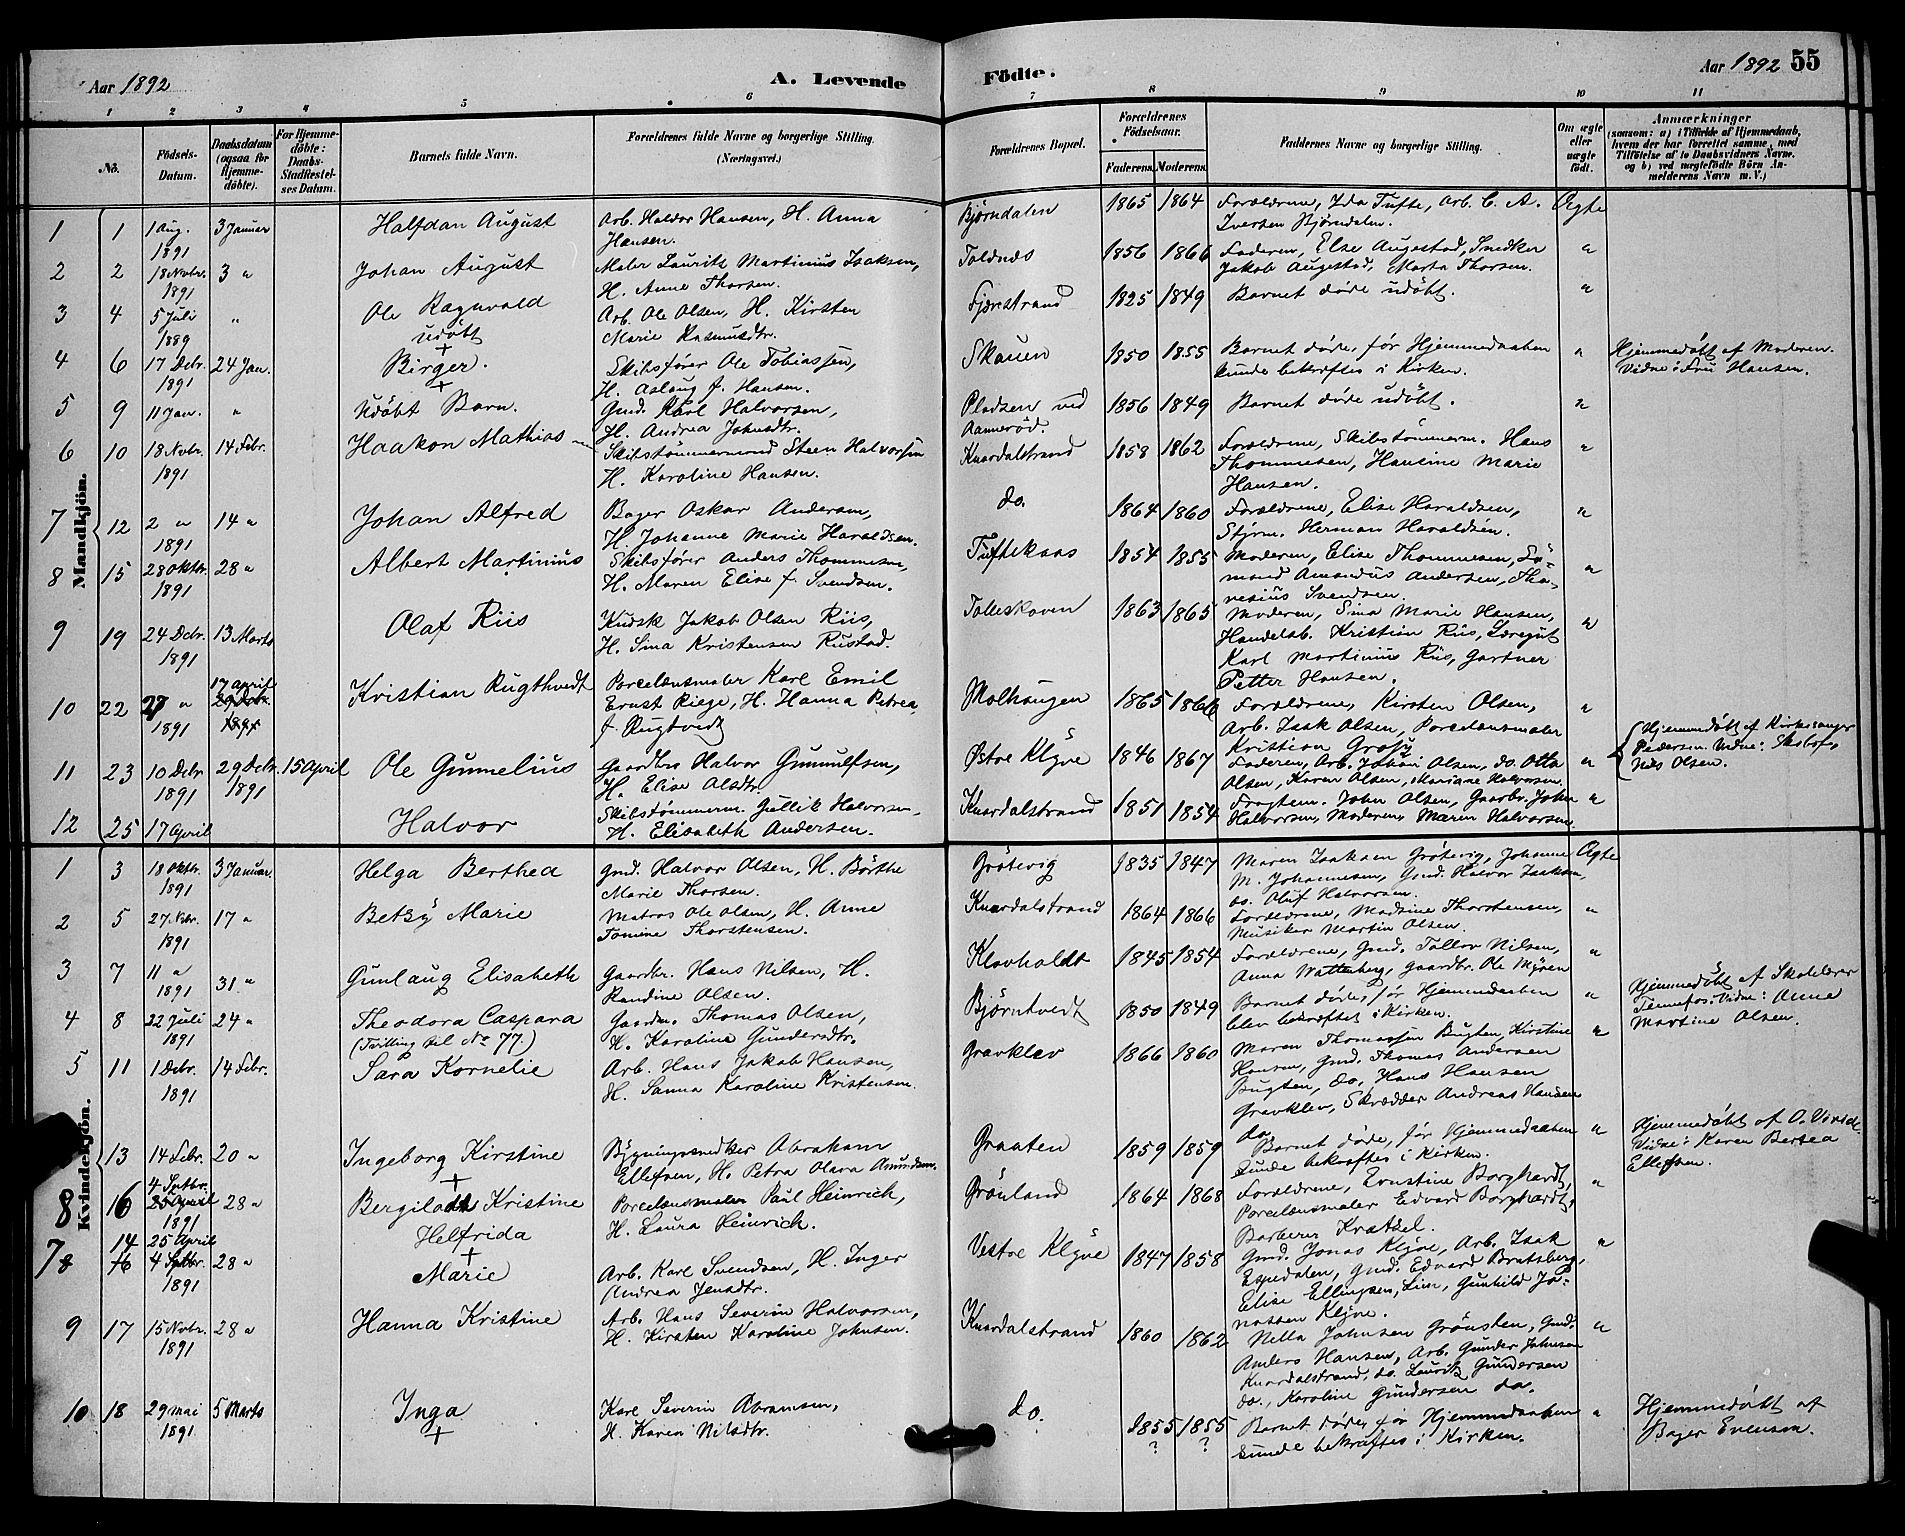 Aar 1892
A. Levende
Födte.
Aar 1892 55
1 2 3 4 5 6 7 8 9 10 11
No.
Födsels-Datum.
Daabsdatum (ogsaa for Hjemme-döbte).
For Hjemme-döbte: Daabs-Stadfæstel-ses Datum.
Barnets fulde Navn.
Forældrenes fulde Navne og borgerlige Stilling.
(Næringsvei.)
Forældrenes Bopæl.
Forældrenes Födselsaar.
Faderens. Moderens.
Faddernes Navne og borgerlige Stilling.
Om ægte eller uægte födt.
Anmærkninger
(saasom: a) i Tilfælde af Hjemmedaab, hvem der har forrettet samme, med Tilföielse af to Daabsvidners Navne, og b) ved uægtefödte Börn An-melderens Navn m. V.)
Mandkjön.
1 1 1 Aug. 1891 3 Januar Halfdan August
Arb. Haldor Hansen, H. Anna Hansen.
Bjørndalen 1865 1864 Forældrene, Ida Tufte, Arb. C. A. Iversen Bjørndalen. Ægte
2 2 18 Novbr. 1891 3 " Johan August
Maler Laurits Martinius Isaksen, H. Anne Thorsen.
Toldnes 1856 1866 Faderen, Else Augestad, Snedker Jakob Augestad, Marta Thorsen. "
3 4 5 Juli 1889 " Ole Ragnvald udøbt +
Arb. Ole Olsen, H. Kirsten Marie Rasmusdtr.
Fjærestrand 1825 1849 Barnet døde udöbt. "
4 6 17 Debr. 1891 24 Jan. Birger. +
Skibsfører Ole Tobiassen, H. Aslaug f. Hansen.
Skauen 1850 1855 Barnet døde, før Hjemmedaaben kunde bekræftes i Kirken. "
Hjemmedöbt af Moderen. Vidne: Fru Hansen.
5 9 11 Jan. " Udöbt Barn.
Gmd. Karl Halvorsen, H. Andrea Johnsdtr.
Pladsen ved Aamerød. 1856 1849 Barnet døde udöbt. "
6 10 18 Novbr. 1891 14 Febr. Haakon Mathias
Skibstømmermand Steen Halvorsen H. Karoline Hansen.
Knardalstrand 1858 1862 Forældrene, Skibstømmerm. Hans Thommesen, Hansine Marie Hansen. "
7 12 2 " 1891 14 " Johan Alfred
Bager Oskar Andersen, H. Johanne Marie Haraldsen.
do. 1864 1860 Forældrene, Elise Haraldsen, Stjrm. Herman Haraldsen. "
8 15 28 Oktbr. 1891 28 " Albert Martinius
Skibsfører Anders Thommesen, H. Maren Elise f. Svendsen.
Tuftekaas 1854 1855 Moderen, Elise Thommesen, Sö-mand Amandus Andersen, Tho-nesius Svendsen. "
9 19 24 Debr. 1891 13 Marts Olaf Riis
Kudsk Jakob Olsen Riis, H. Sina Kristensen Rustad.
Tolleskoven 1863 1865 Moderen, Sina Marie Hansen, Handelsb. Kristian Riis, Læregut Karl Martinius Riis, Gartner Petter Hansen. "
10 22 27 " 1891 17 April 29 Debr. 1891 Kristian Rugthvedt
Porcelænsmaler Karl Emil Ernst Riege, H. Hanna Petrea f. Rugtvedt
Molhaugen 1865 1866 Forældrene, Kirsten Olsen, Arb. Isak Olsen, Porcelænsmaler Kristian Grosz "
11 23 10 Debr. 1891 29 Debr. 1891 15 April Ole Gunnelius
Gaardbr. Halvor Gunnulfsen, H. Elise Olsdtr.
Østre Klyve 1846 1867 Faderen, Arb. Johan Olsen, do. Otto Olsen, Karen Olsen, Mariane Halvorsen. "
Hjemmedöbt af Kirkesanger Pedersen. Vidne: Skibsf. Nils Olsen.
12 25 17 April Halvor
Skibstømmerm. Gullik Halvorsen, H. Elisabeth Andersen.
Knardalstrand 1851 1854 Fragtem. John Olsen, Gaardbr. John Halvorsen, Moderen, Maren Halvorsen. "
Kvindekjön.
1 3 18 Oktbr. 1891 3 Januar. Helga Berthea
Gmd. Halvor Olsen, H. Börthe Marie Thorsen.
Grötevig 1835 1847 Maren Isaksen Grötevig, Johanne M. Johannesen, Gmd. Halvor Isaksen, do. Oluf Halvorsen. Ægte
2 5 27 Nbr. 1891 17 " Betzy Marie
Matros Ole Olsen, H. Anne Tomine Thorstensen.
Knardalstrand 1864 1866 Forældrene, Madsine Thorstensen, Musiker Martin Olsen. "
3 7 11 " 1891 31 " Gunlaug Elisabeth
Gaardbr. Hans Nilsen, H. Randine Olsen.
Klovholdt 1845 1854 Forældrene, Gmd. Tollov Nilsen, Anna Wattenberg, Gaardbr. Ole Myren "
4 8 22 Juli 1891 24 " Theodora Caspara (Tvilling til No 77.)
Gaardm. Thomas Olsen, H. Karoline Gundersdtr.
Bjørntvedt 1850 1849 Barnet døde, før Hjemmedaaben blev bekræftet i Kirken. "
Hjemmedöbt af Skolelærer Tennefos. Vidne: Anne Martine Olsen.
5 11 1 Debr. 1891 14 Febr. Sara Kornelie
Arb. Hans Jakob Hansen, H. Sanna Karoline Kristensen.
Gravklev 1866 1860 Maren Thomassen Bugten, Kirstine Hansen, Gmd. Thomas Andersen Bugten, do. Hans Hansen Gravklev, Skrædder Andreas Hansen do "
13 14 Febr. 20 " Ingeborg Kirstine +
Bygningssnedker Abraham Ellefsen, H. Petra Olava Amundsen.
Graaten 1859 1859 Barnet døde, før Hjemmedaaben kunde bekræftes i Kirken. "
Hjemmedöbt af Vidne: Karen Bertea Ellefsen.
8 16 4 Septbr. 25 April 1891 28 " Bergilodt Kristine Helfrida
Porcelænsmaler Paul Heinrich, H. Laura Heinrich.
Grönland 1864 1868 Forældrene, Ernstine Borghardt, Porcelænsmaler Edvard Borghardt, Barberer Kratzel. "
7 8 14 16 25 April 4 Septbr. 1891 28 " Marie +
Arb. Karl Svendsen, H. Inger Andrea Jensdtr.
Vestre Klyve 1847 1858 Gmd. Jonas Klyve, Arb. Isak Espedalen, Gmd. Edvard Bratsberg, Elise Ellingsen, Lien, Gunhild Jo-nassen Klyve. "
9 17 15 Novbr. 1891 28 " Hanna Kristine
Arb. Hans Severin Halvorsen, H. Kirsten Karoline Johnsen.
Knardalstrand 1860 1862 Nella Johnsen Grönsten, Gmd. Anders Hansen, Arb. Gunder Johnsen Knardalstrand, do. Lauritz Gundersen do., Karoline Gundersen do. "
10 18 29 Mai 1891 5 Marts Inga +
Karl Severin Abramsen, H. Karen Nilsdtr.
do. 1855 ? 1855 ? Barnet døde, før Hjemmedaaben kunde bekræftes i Kirken. "
Hjemmedöbt af Bager Evensen.